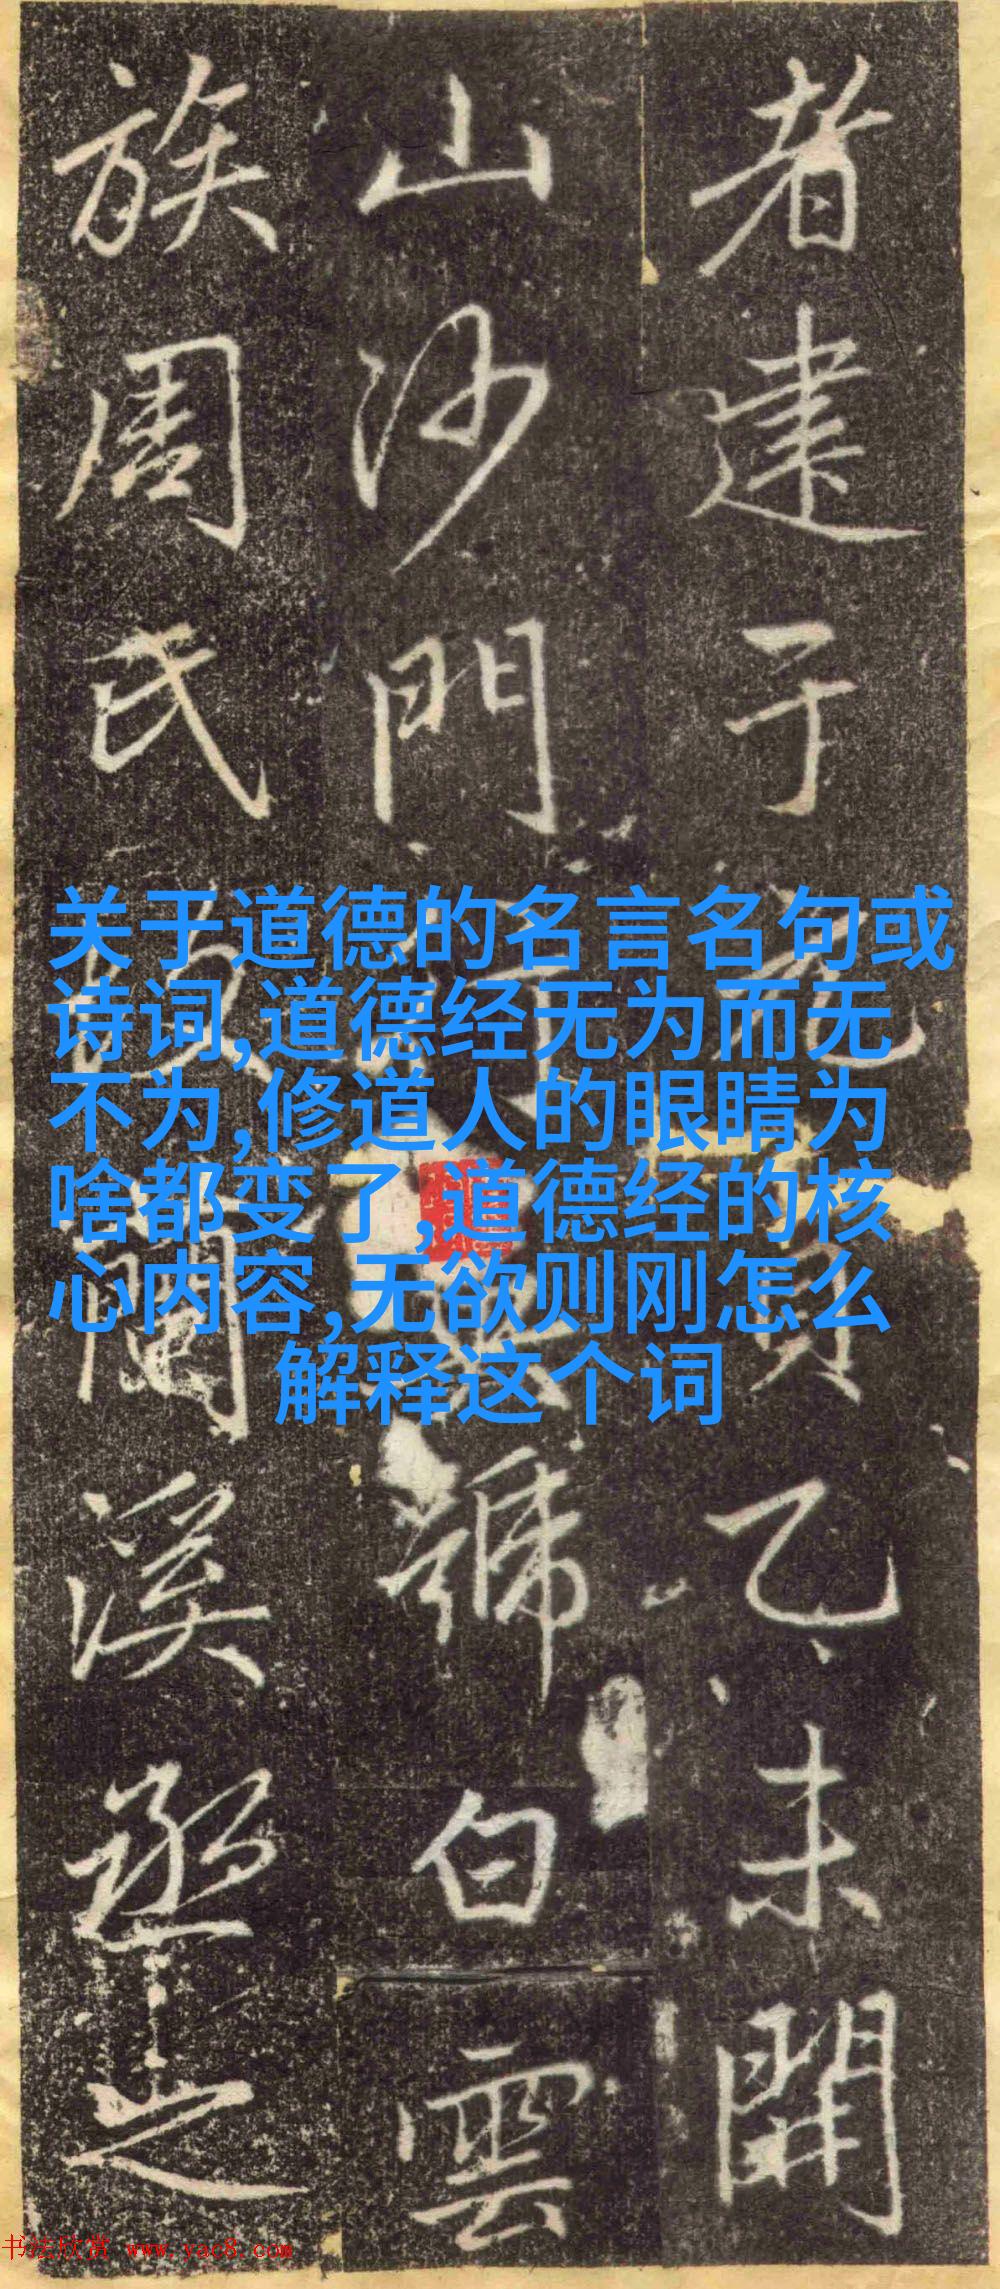 者建于元贞乙未開
山沙門行 號白雲
族周氏 蘭溪丞之
关于道德的名言名句或
诗词,道德经无为而无
不为,修道人的眼睛为
啥都变了,道德经的核
心内容,无欲则刚怎么
解释这个词
书法欣赏 www.yac8.com